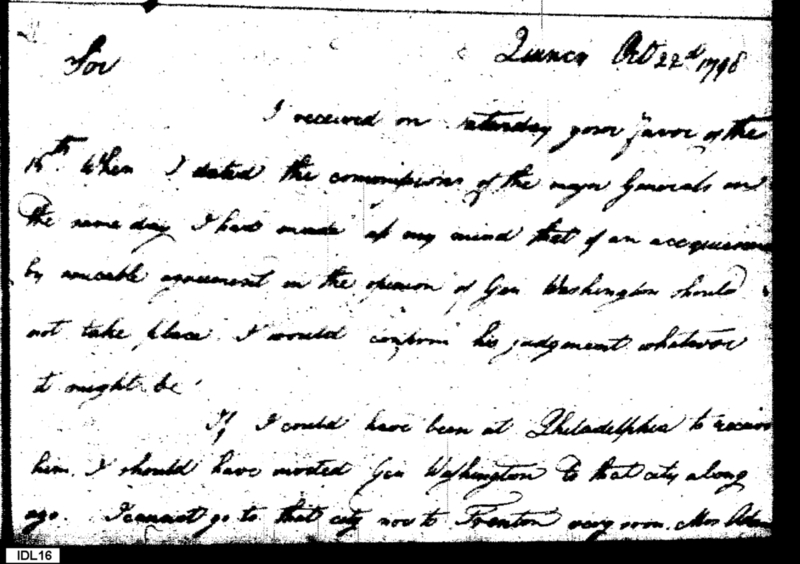 Quincy Oct 22d 1798
Sir
I received on Saturday your favor of the
When I dated the commissions of the major Generals on
the same day I had made up my mind that if an acquiescence
by amicable agreement in the opinion of Gen Washington should
not take place I would confirm his judgement whatever
it might be.
If I could have been at Philadelphia to receive
him I should have invited Gen Washington to that city along
ago. I cannot go to that city nor to Trenton very soon. Mrs Adam
IDL16